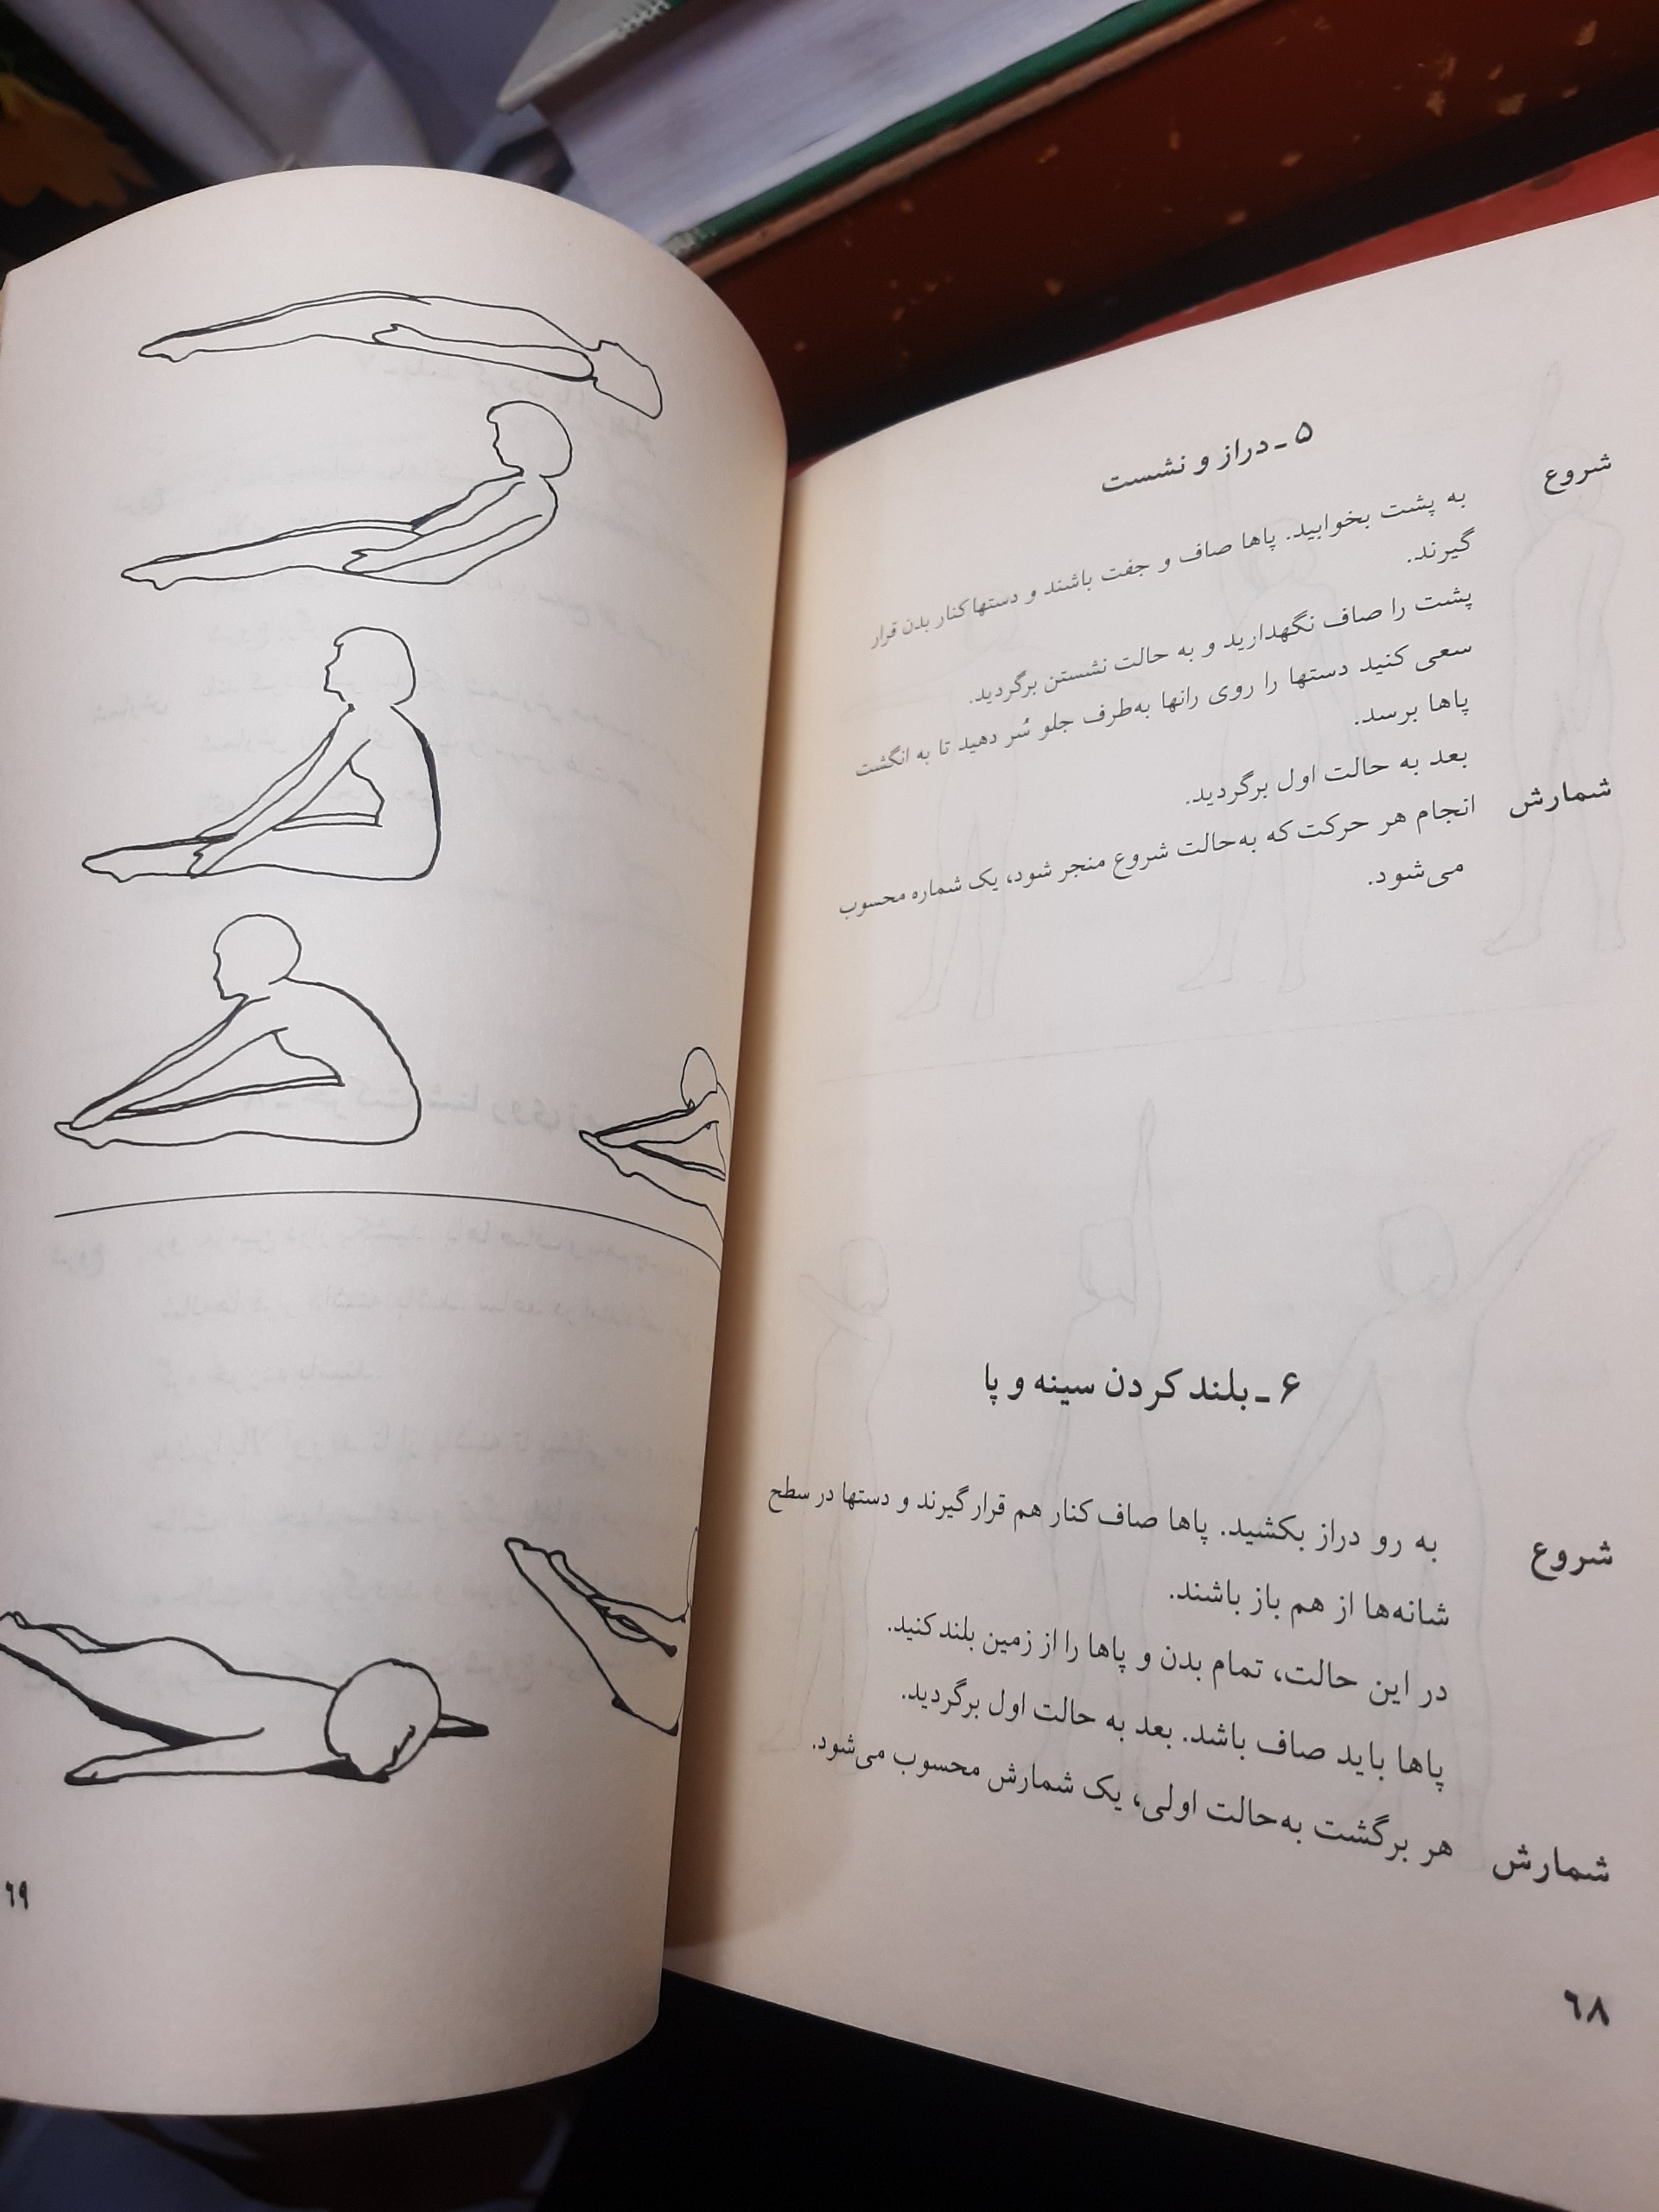 ۵ ـ دراز و نشست
شروع به پشت بخوابید. پاها صاف و جفت باشند و دستها کنار بدن قرار
گیرند.
پشت را صاف نگهدارید و به حالت نشستن برگردید.
سعی کنید دستها را روی رانها به‌طرف جلو سُر دهید تا به انگشت
پاها برسد.
بعد به حالت اول برگردید.
شمارش انجام هر حرکت که به‌حالت شروع منجر شود، یک شماره محسوب
می‌شود.
۶ ـ بلند کردن سینه و پا
شروع به رو دراز بکشید. پاها صاف کنار هم قرار گیرند و دستها در سطح
شانه‌ها از هم باز باشند.
در این حالت، تمام بدن و پاها را از زمین بلند کنید.
پاها باید صاف باشد. بعد به حالت اول برگردید.
شمارش هر برگشت به‌حالت اولی، یک شمارش محسوب می‌شود.
۶۸
۶۹